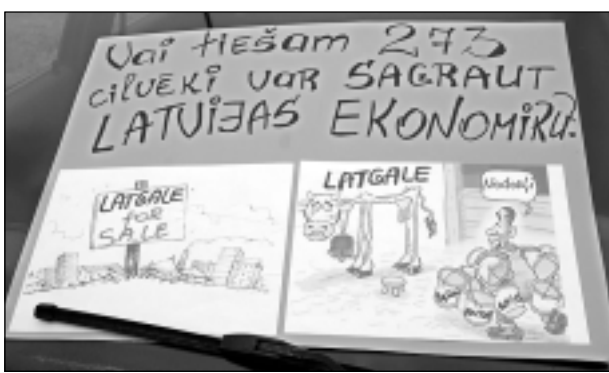 Vai tiešam 273
cilvēki var SAGRAUT
LATVIJAS EKONOMIKU?
LATGALE
for
SALE
LATGALE